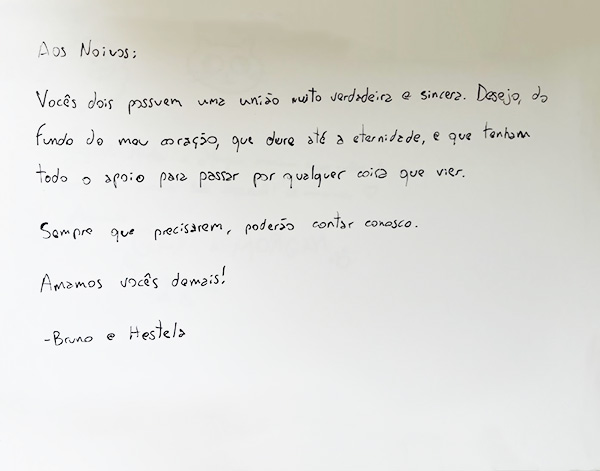 Aos Noivos:
Vocês dois possuem uma união muito verdadeira e sincera. Desejo, do
fundo do meu coração, que dure até a eternidade, e que tenham
todo o apoio para passar por qualquer coisa que vier.
Sempre que precisarem, poderão contar conosco.
Amamos vocês demais!
-Bruno e Hestela